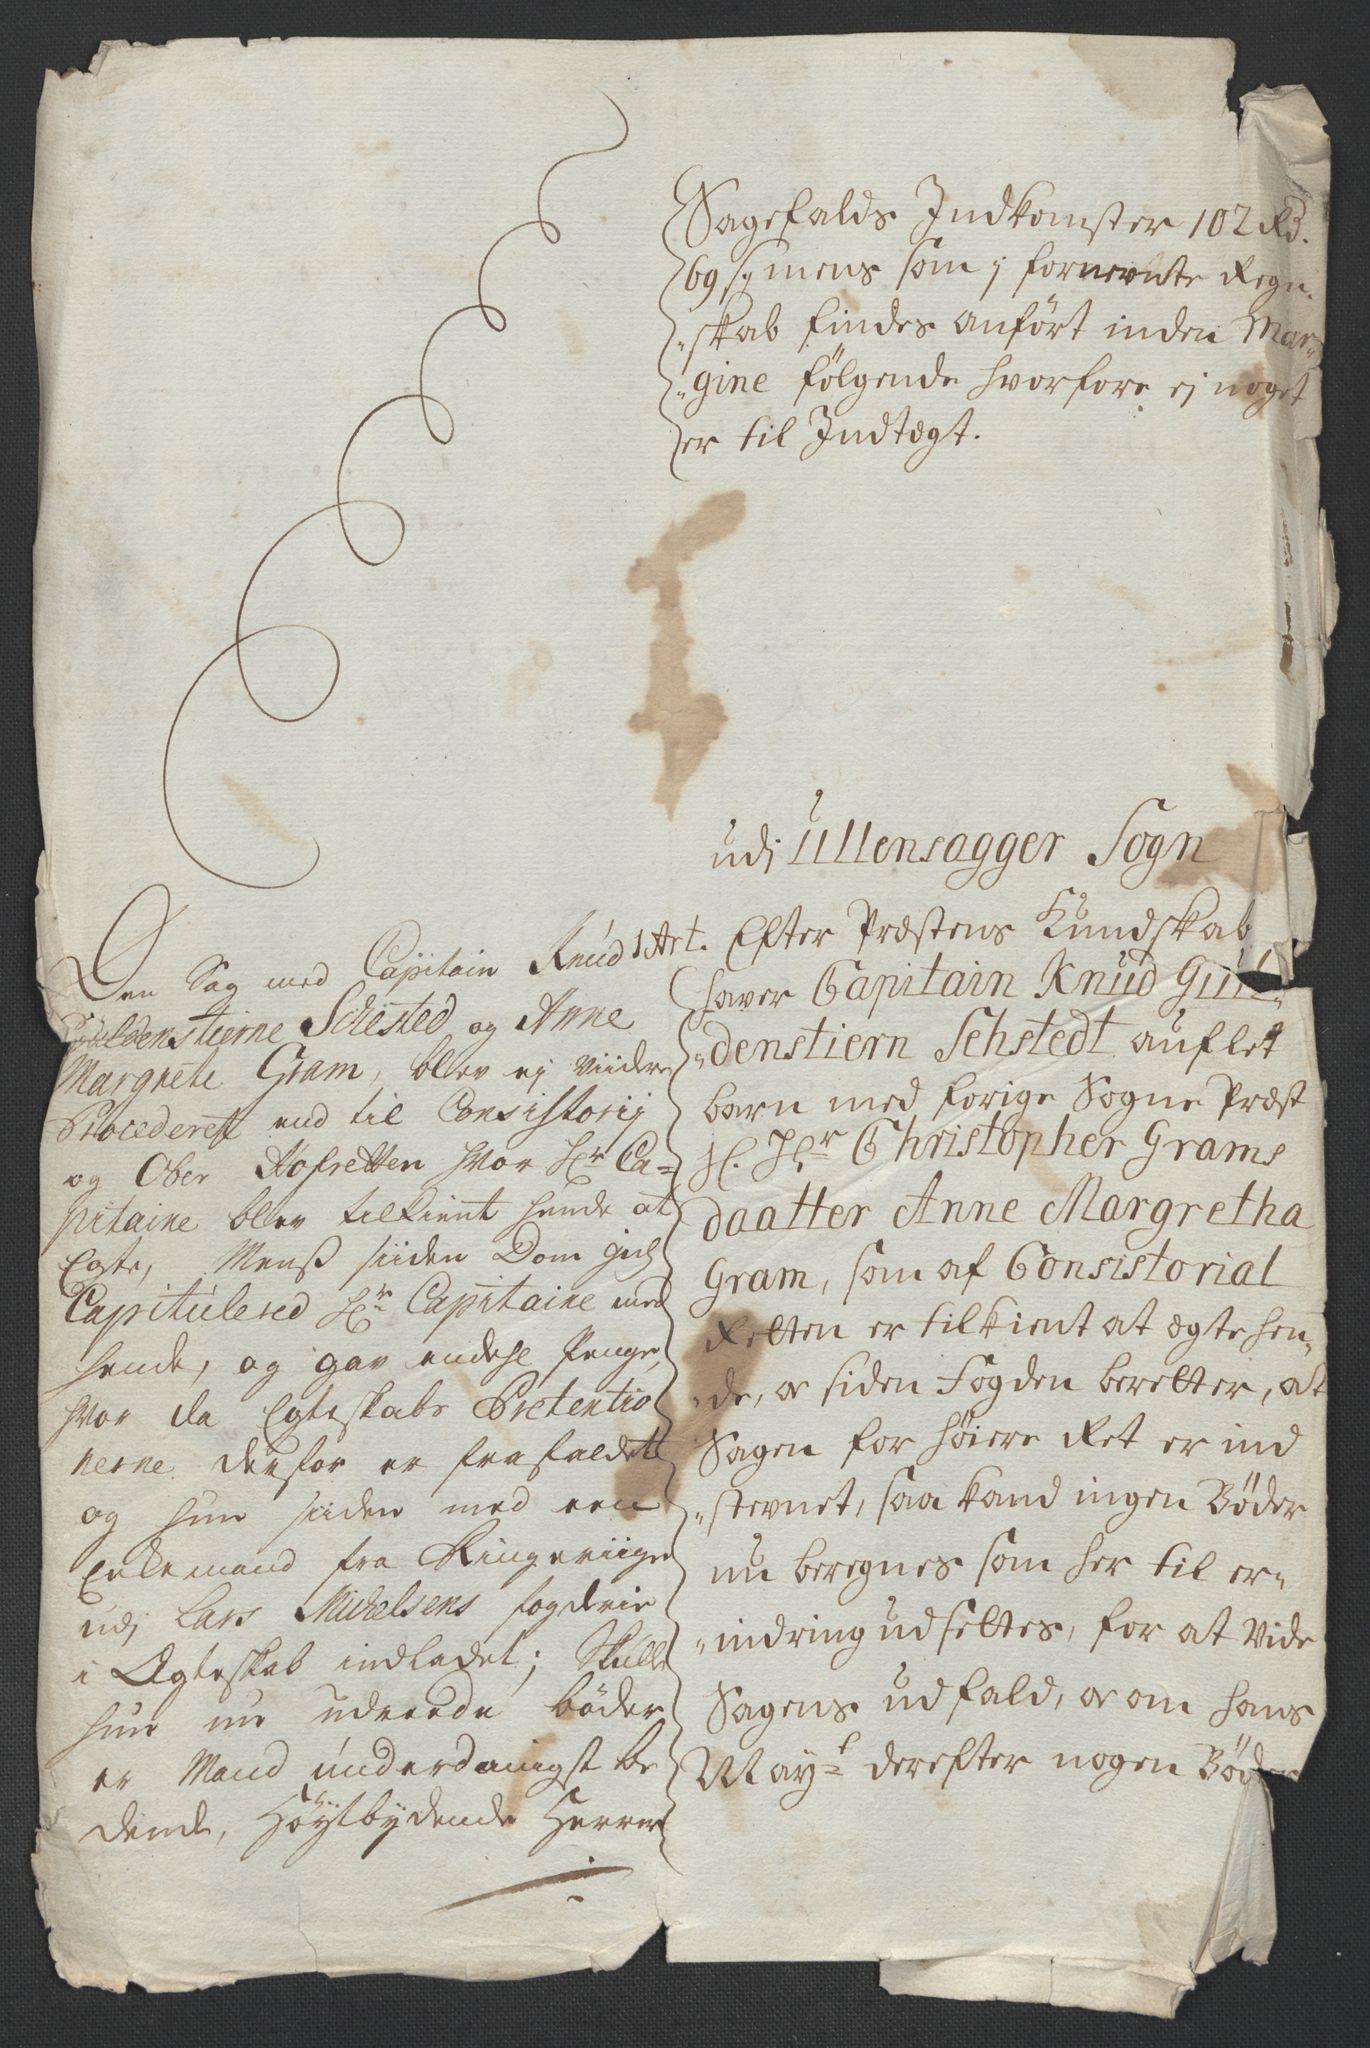 Sagefalds Indkomster 102 Rd.
69 s; mens som j fornevnte Regn-
-skab findes anført inden Mar-
-gine følgende hvorfore ej noget
er til Indtægt.
udj Ullensagger Sogn
1 Art. Efter Præstens Kundskab
haver Capitain Knud Gül-
-denstiern Sehstedt auflet
barn med forige Sogne Præst
Sl. Hr Christopher Grams
daatter Anne Margretha
Gram, som af Consistorial
Retten er tilkient at ægte hen-
-de, og siden Fogden beretter, at
Sagen for høiere Ret er ind
-stevnet, saa kand ingen Bøder
nu beregnes som her til er-
-indring udsettes, for at vide
Sagens udfald, og om hans
May:t derefter nogen Bøder
Den Sag med Capitain Knud
Güldenstierne Schested og Anne
Margrete Gram, blev ej viidere
Procederet end til Consistorij
og Ober Hofretten hvor Hr Ca-
pitaine blev tilkient hende at
Egte, Menß siiden Dom gich
Capitulered Hr Capitaine med
hende, og gav endehl Penge,
hvor da Egteskabs Pretentio
nerne derfor er frafaldet
og hun siiden med een
Enkemand fra Ringeriige
udj Lars Michelsens fogderie
i Ægteskab indladet; Skulle
hun nu udreede bøder
er Mand underdanigst be
dende, Høytbydende Herrer